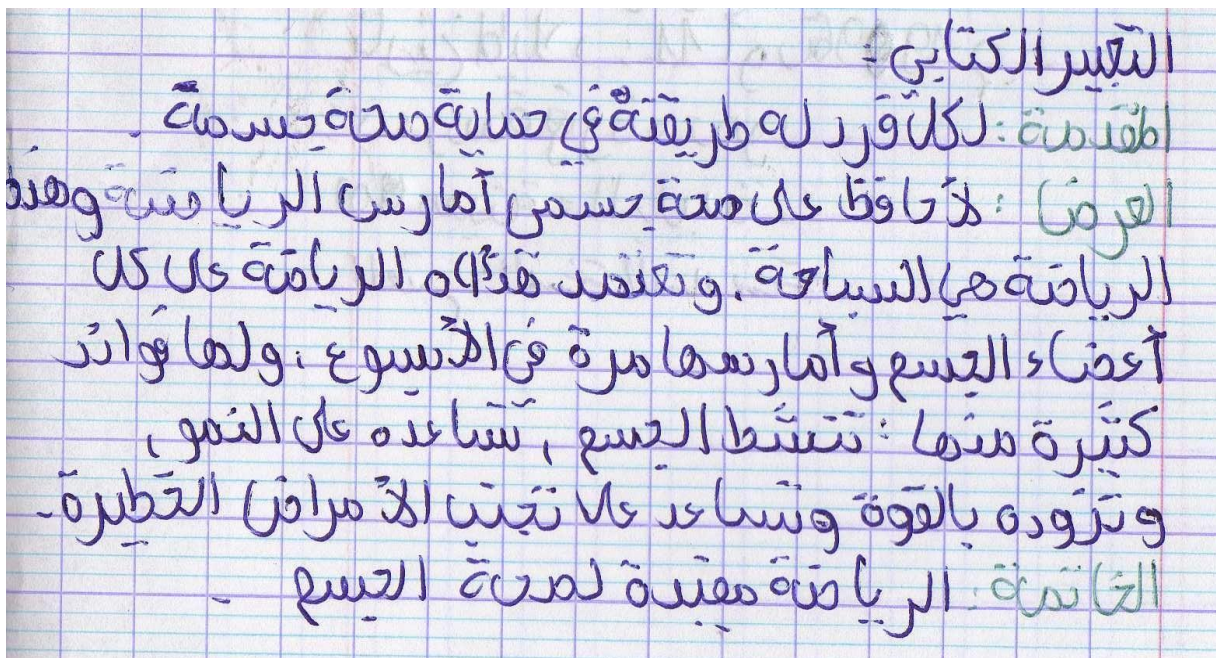 التعبير الكتابي :
المقدمة : لكل فرد له طريقتة في حماية صحة جسمة .
العرض : لأحافظ على صحة جسمي أمارس الرياضة وهذه
الرياضة هي السباحة . وتعتمد هذه الرياضة على كل
أعضاء الجسم وأمارسها مرة في الأسبوع ، ولها فوائد
كثيرة منها : تنشط الجسم ، تساعده على النمو ،
وتزوده بالقوة وتساعد على تجنب الأمراض الخطيرة .
الخاتمة : الرياضة مفيدة لصحة الجسم .